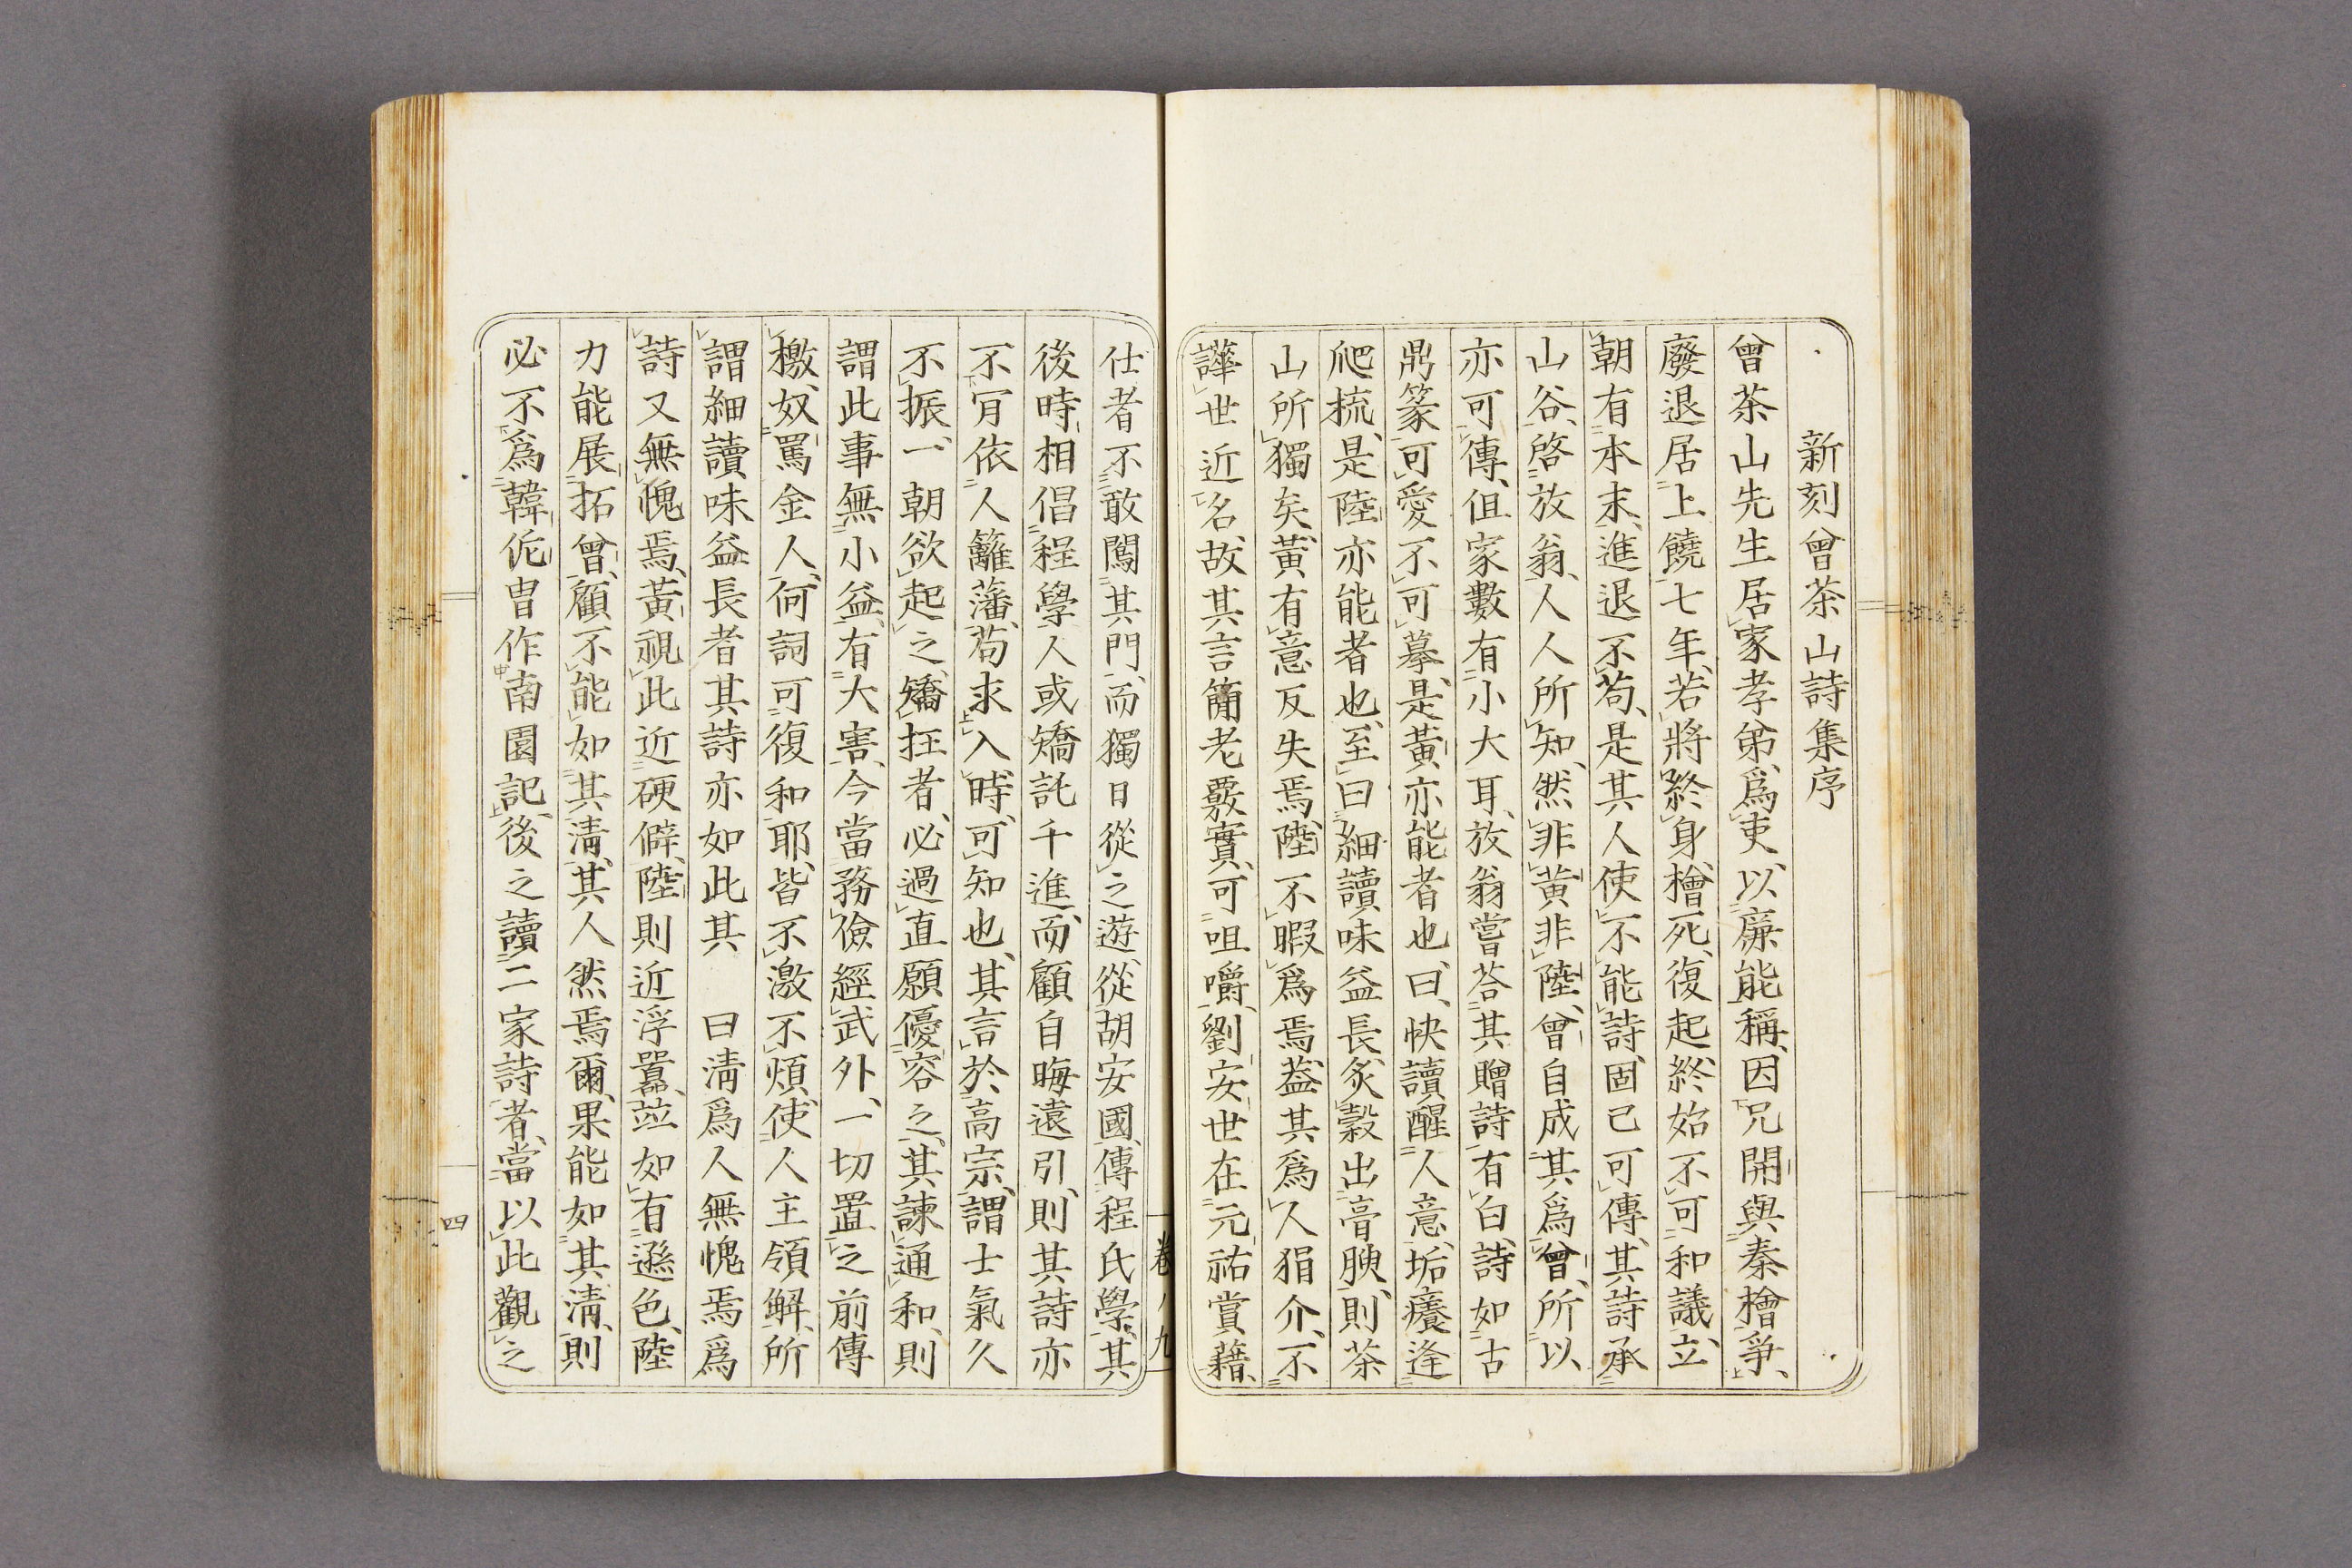 新刻曾茶山詩集序
曾茶山先生居家孝弟爲吏以廉能稱因兄開與秦檜爭
廢退居上饒七年若將終身檜死復起終始不可和議立
朝有本末進退不苟是其人使不能詩固已可傳其詩承
山谷啓放翁人人所知然非黄非陸曾自成其爲曾所以
亦可傳但家數有小大耳放翁嘗荅其贈詩有白詩如古
鼎篆可愛不可摹是黄亦能者也曰快讀醒人意垢癢逢
爬梳是陸亦能者也至曰細讀味益長炙轂出膏腴則茶
山所獨矣黄有意反失焉陸不暇爲焉葢其爲人狷介不
譁世近名故其言簡老覈實可咀嚼劉安世在元祐賞藉
仕者不敢闖其門而獨日從之遊從胡安國傳程氏學其
後時相倡程學人或矯託千進而顧自晦遠引則其詩亦
不肎依人籬藩苟求入時可知也其言於高宗謂士氣久
不振一朝欲起之矯抂者必過直願優容之其諫通和則
謂此事無小益有大害今當務儉經武外一切置之前傳
檄奴罵金人何詞可復和耶皆不激不煩使人主領解所
謂細讀味益長者其詩亦如此其 曰淸爲人無愧焉爲
詩又無愧焉黄視此近硬僻陸則近浮囂竝如有遜色陸
力能展拓曾顧不能如其淸其人然焉爾果能如其淸則
必不爲韓侂冑作南園記後之讀二家詩者當以此觀之
卷ノ九
四